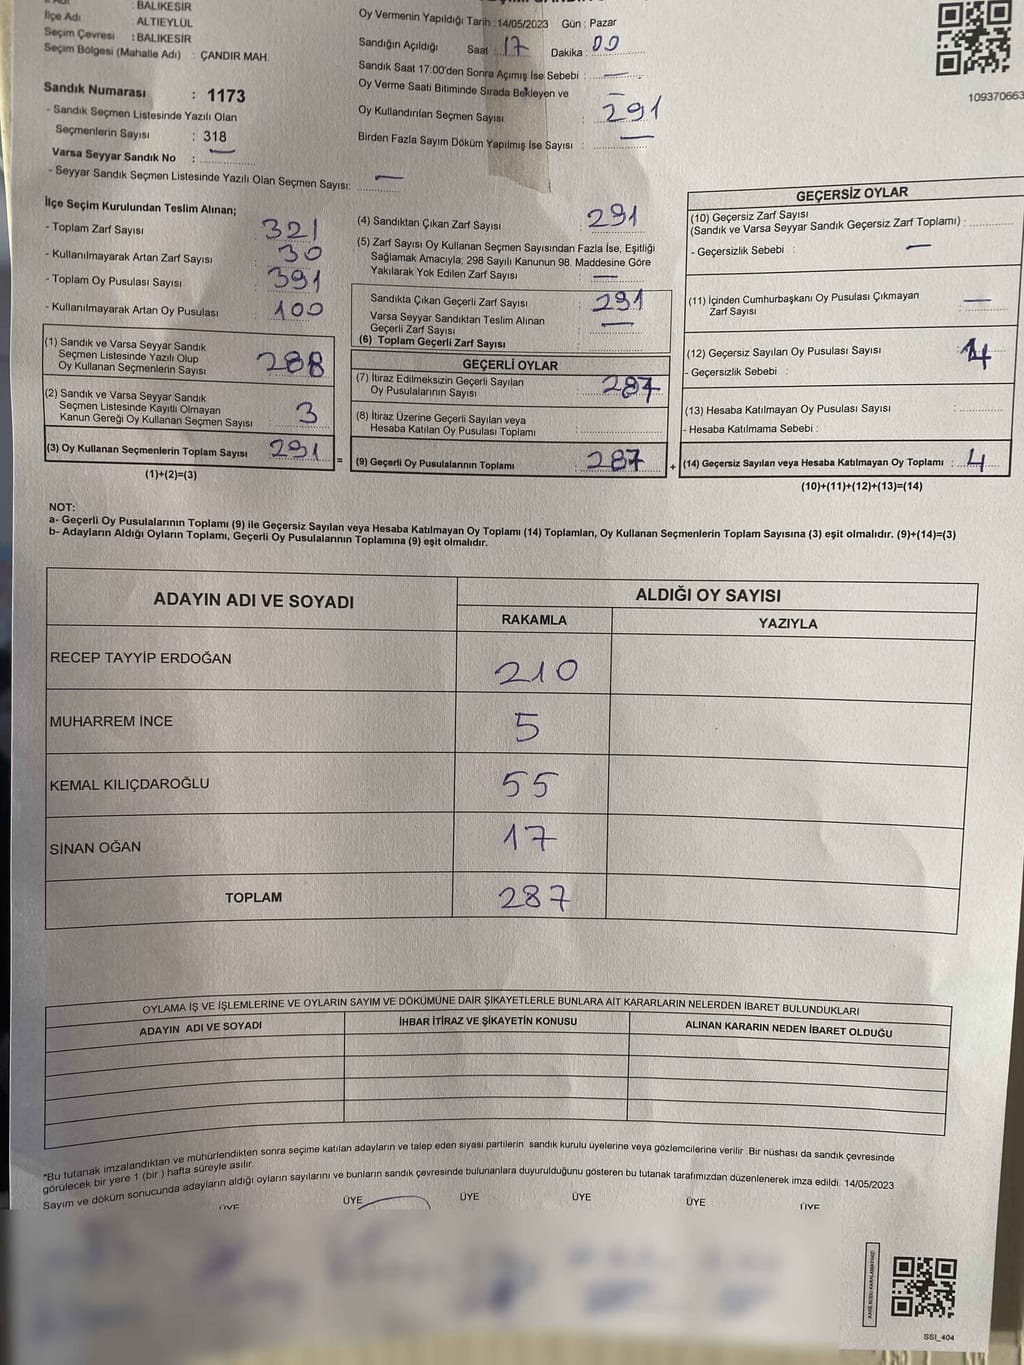 : BALIKESİR
İlçe Adı : ALTIEYLÜL
Seçim Çevresi : BALIKESİR
Seçim Bölgesi (Mahalle Adı) : ÇANDIR MAH.
Sandık Numarası : 1173
- Sandık Seçmen Listesinde Yazılı Olan
Seçmenlerin Sayısı : 318
Varsa Seyyar Sandık No : —
- Seyyar Sandık Seçmen Listesinde Yazılı Olan Seçmen Sayısı: —
Oy Vermenin Yapıldığı Tarih : 14/05/2023 Gün : Pazar
Sandığın Açıldığı Saat : 17 Dakika : 00
Sandık Saat 17:00'den Sonra Açımış İse Sebebi : —
Oy Verme Saati Bitiminde Sırada Bekleyen ve —
Oy Kullandırılan Seçmen Sayısı : 291
Birden Fazla Sayım Döküm Yapılmış İse Sayısı : —
109370663
İlçe Seçim Kurulundan Teslim Alınan;
- Toplam Zarf Sayısı : 321
- Kullanılmayarak Artan Zarf Sayısı : 30
- Toplam Oy Pusulası Sayısı : 391
- Kullanılmayarak Artan Oy Pusulası : 100
(1) Sandık ve Varsa Seyyar Sandık
Seçmen Listesinde Yazılı Olup
Oy Kullanan Seçmenlerin Sayısı : 288
(2) Sandık ve Varsa Seyyar Sandık
Seçmen Listesinde Kayıtlı Olmayan
Kanun Gereği Oy Kullanan Seçmen Sayısı : 3
(3) Oy Kullanan Seçmenlerin Toplam Sayısı : 291
(1)+(2)=(3)
=
(4) Sandıktan Çıkan Zarf Sayısı : 291
(5) Zarf Sayısı Oy Kullanan Seçmen Sayısından Fazla İse, Eşitliği
Sağlamak Amacıyla; 298 Sayılı Kanunun 98. Maddesine Göre
Yakılarak Yok Edilen Zarf Sayısı : —
Sandıkta Çıkan Geçerli Zarf Sayısı : 291
Varsa Seyyar Sandıktan Teslim Alınan
Geçerli Zarf Sayısı : —
(6) Toplam Geçerli Zarf Sayısı :
GEÇERLİ OYLAR
(7) İtiraz Edilmeksizin Geçerli Sayılan
Oy Pusulalarının Sayısı : 287
(8) İtiraz Üzerine Geçerli Sayılan veya
Hesaba Katılan Oy Pusulası Toplamı :
(9) Geçerli Oy Pusulalarının Toplamı : 287
+
GEÇERSİZ OYLAR
(10) Geçersiz Zarf Sayısı
(Sandık ve Varsa Seyyar Sandık Geçersiz Zarf Toplamı) :
- Geçersizlik Sebebi : —
(11) İçinden Cumhurbaşkanı Oy Pusulası Çıkmayan
Zarf Sayısı : —
(12) Geçersiz Sayılan Oy Pusulası Sayısı : 4
- Geçersizlik Sebebi :
(13) Hesaba Katılmayan Oy Pusulası Sayısı :
- Hesaba Katılmama Sebebi :
(14) Geçersiz Sayılan veya Hesaba Katılmayan Oy Toplamı : 4
(10)+(11)+(12)+(13)=(14)
NOT:
a- Geçerli Oy Pusulalarının Toplamı (9) ile Geçersiz Sayılan veya Hesaba Katılmayan Oy Toplamı (14) Toplamları, Oy Kullanan Seçmenlerin Toplam Sayısına (3) eşit olmalıdır. (9)+(14)=(3)
b- Adayların Aldığı Oyların Toplamı, Geçerli Oy Pusulalarının Toplamına (9) eşit olmalıdır.
ADAYIN ADI VE SOYADI ALDIĞI OY SAYISI
RAKAMLA YAZIYLA
RECEP TAYYİP ERDOĞAN 210
MUHARREM İNCE 5
KEMAL KILIÇDAROĞLU 55
SİNAN OĞAN 17
TOPLAM 287
OYLAMA İŞ VE İŞLEMLERİNE VE OYLARIN SAYIM VE DÖKÜMÜNE DAİR ŞİKAYETLERLE BUNLARA AİT KARARLARIN NELERDEN İBARET BULUNDUKLARI
ADAYIN ADI VE SOYADI İHBAR İTİRAZ VE ŞİKAYETİN KONUSU ALINAN KARARIN NEDEN İBARET OLDUĞU
*Bu tutanak imzalandıktan ve mühürlendikten sonra seçime katılan adayların ve talep eden siyasi partilerin sandık kurulu üyelerine veya gözlemcilerine verilir .Bir nüshası da sandık çevresinde
görülecek bir yere 1 (bir ) hafta süreyle asılır.
Sayım ve döküm sonucunda adayların aldığı oyların sayılarını ve bunların sandık çevresinde bulunanlara duyurulduğunu gösteren bu tutanak tarafımızdan düzenlenerek imza edildi. 14/05/2023
ÜYE ÜYE ÜYE ÜYE ÜYE ÜYE
SSI_404